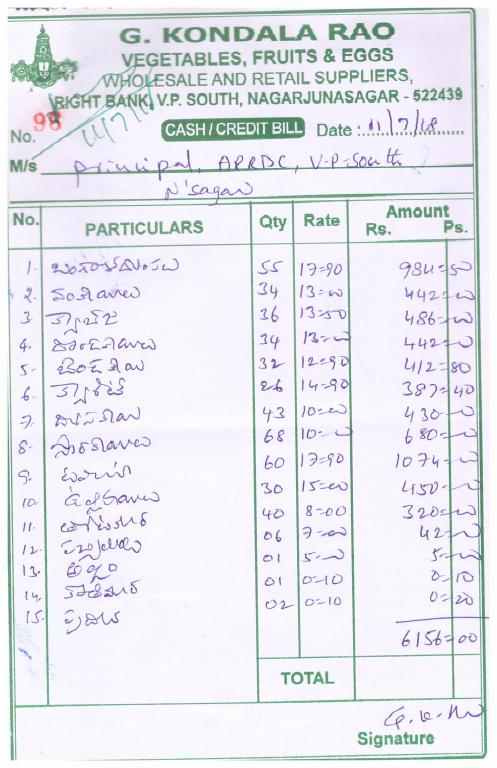 G. KONDALA RAO
VEGETABLES, FRUITS & EGGS
WHOLESALE AND RETAIL SUPPLIERS,
RIGHT BANK, V.P. SOUTH, NAGARJUNASAGAR - 522439
No. 98 11/7/18 CASH / CREDIT BILL Date : 11/7/18
M/s Principal, APRDC, V.P-South
N'sagar
No. PARTICULARS Qty Rate Amount
Rs. Ps.
1. బంగాళదుంపలు 55 17=90 984=50
2. వంకాయలు 34 13=00 442=00
3. క్యాబేజి 36 13=50 486=00
4. దొండకాయలు 34 13=00 442=00
5. బెండకాయ 32 12=90 412=80
6. క్యారెట్ 26 14=90 387=40
7. 43 10=00 430=00
8. సొరకాయలు 68 10=00 680=00
9. టమాటా 60 17=90 1074=00
10. ఉల్లిపాయలు 30 15=00 450=00
11. తోటకూర 40 8=00 320=00
12. 06 7=00 42=00
13. అల్లం 01 5=00 5=00
14. కొతిమీర 01 0=10 0=10
15. పుదీన 02 0=10 0=20
6156=00
TOTAL
G. K. Rao
Signature